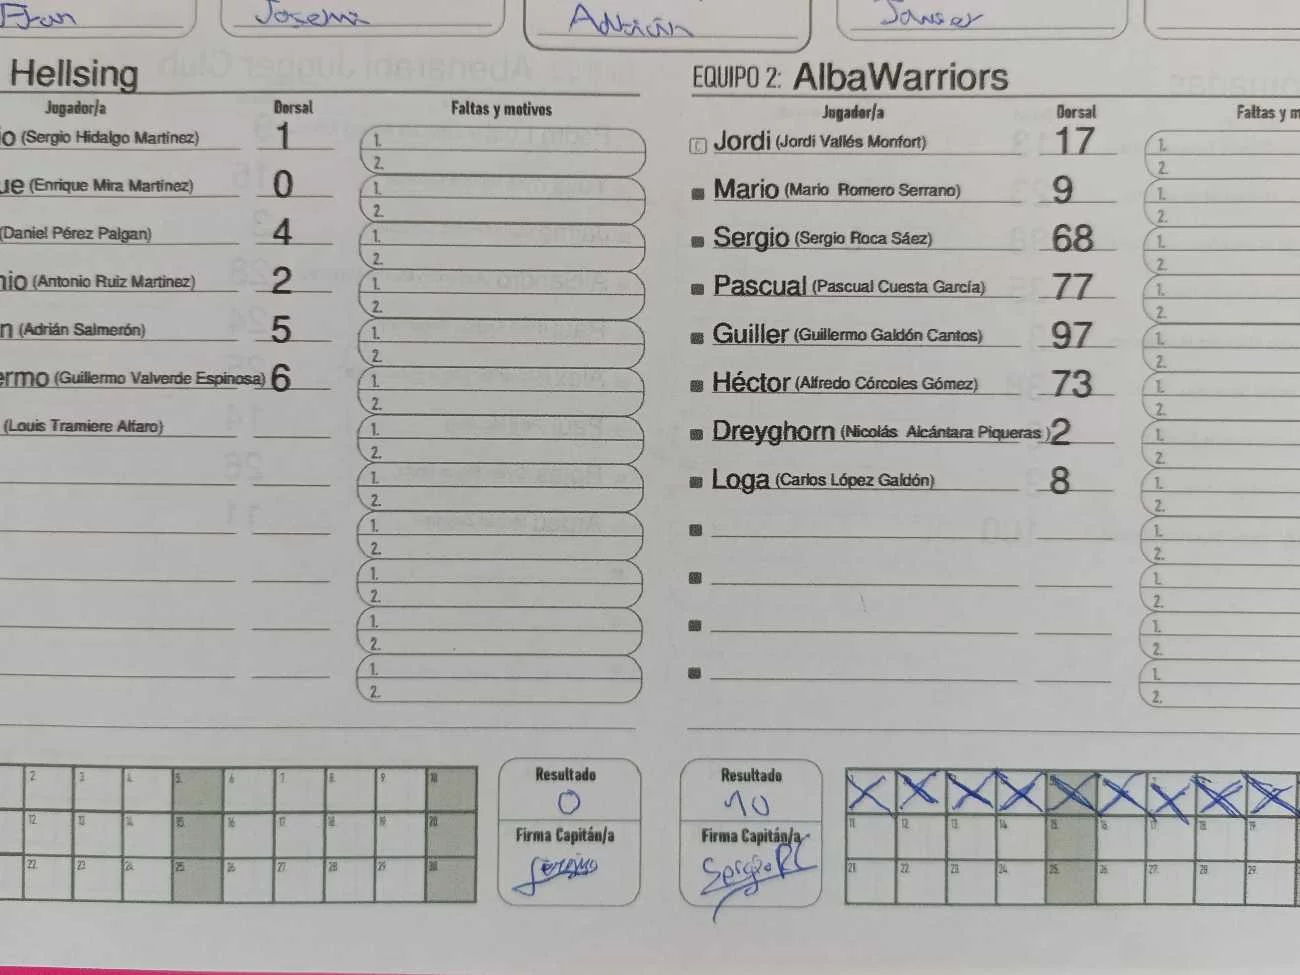 Fran Josema Adrián Javier
Hellsing
Jugador/a Dorsal Faltas y motivos
io (Sergio Hidalgo Martínez) 1 1.
2.
ue (Enrique Mira Martínez) 0 1.
2.
(Daniel Pérez Palgan) 4 1.
2.
nio (Antonio Ruiz Martínez) 2 1.
2.
n (Adrián Salmerón) 5 1.
2.
ermo (Guillermo Valverde Espinosa) 6 1.
2.
(Louis Tramiere Alfaro) 1.
2.
1.
2.
1.
2.
1.
2.
1.
2.
1.
2.
EQUIPO 2: AlbaWarriors
Jugador/a Dorsal Faltas y m
C Jordi (Jordi Vallés Monfort) 17 1.
2.
Mario (Mario Romero Serrano) 9 1.
2.
Sergio (Sergio Roca Sáez) 68 1.
2.
Pascual (Pascual Cuesta García) 77 1.
2.
Guiller (Guillermo Galdón Cantos) 97 1.
2.
Héctor (Alfredo Córcoles Gómez) 73 1.
2.
Dreyghorn (Nicolás Alcántara Piqueras ) 2 1.
2.
Loga (Carlos López Galdón) 8 1.
2.
1.
2.
1.
2.
1.
2.
1.
2.
2 3 4 5 6 7 8 9 10
12 13 14 15 16 17 18 19 20
22 23 24 25 26 27 28 29 30
Resultado
0
Firma Capitán/a
Resultado
10
Firma Capitán/a
Sergio RC
X X X X X X X X X
11 12 13 14 15 16 17 18 19
21 22 23 24 25 26 27 28 29